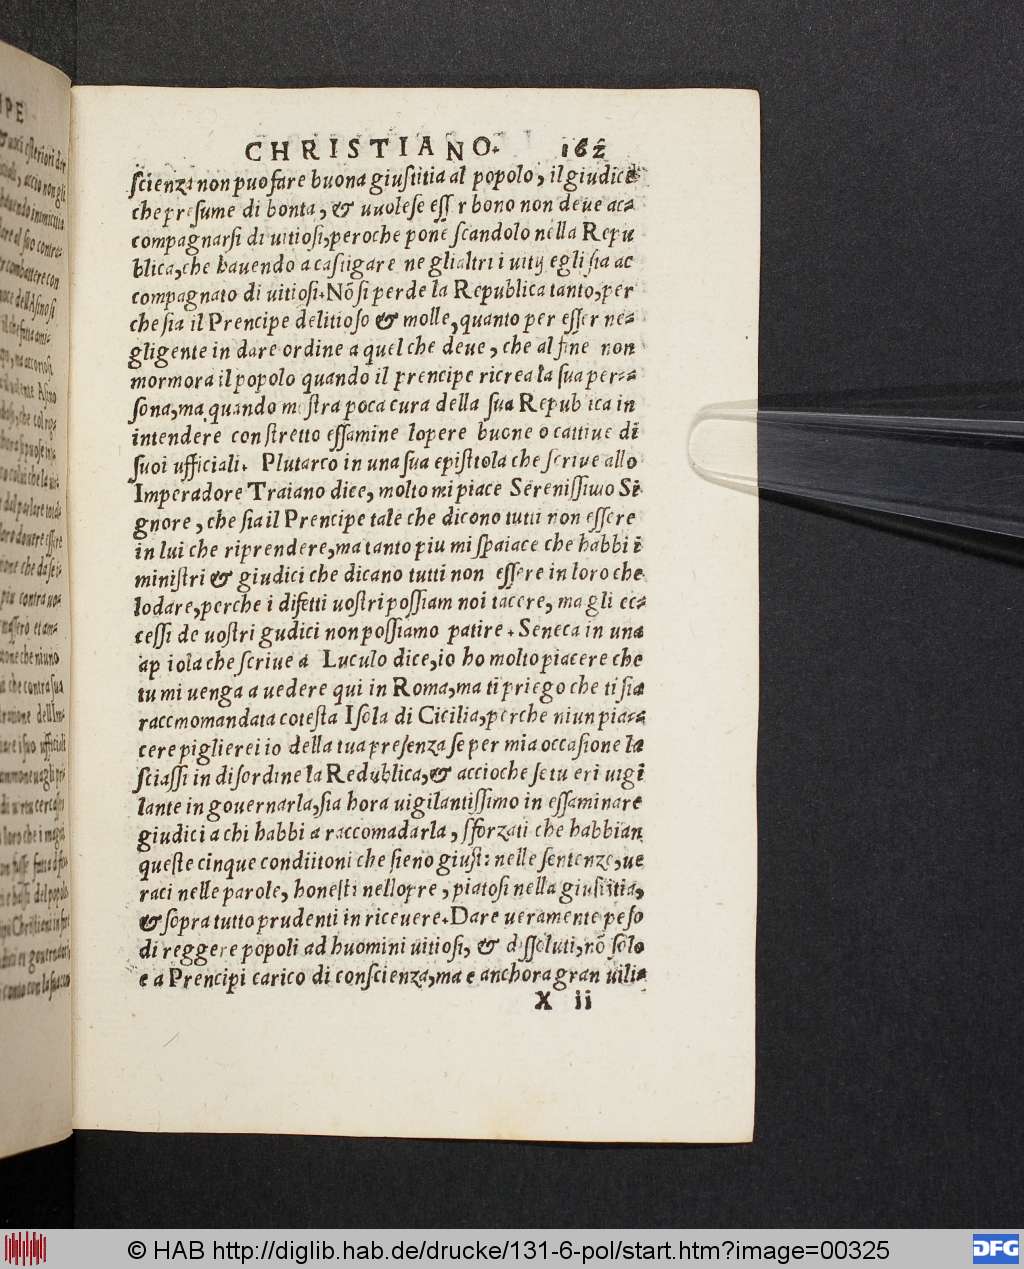 CHRISTIANO. 162
scienza non puo fare buona giustitia al popolo, il giudice
che presume di bonta, & uuolese esser bono non deue ac-
compagnarsi di uitiosi, peroche pone scandolo nella Repu
blica, che hauendo a castigare ne glialtri i uitij egli sia ac
compagnato di uitiosi. Nō si perde la Republica tanto, per
che sia il Prencipe delitioso & molle, quanto per esser ne-
gligente in dare ordine a quel che deue, che al fine non
mormora il popolo quando il prencipe ricrea la sua per-
sona, ma quando mostra poca cura della sua Republica in
intendere con stretto essamine lopere buone o cattiue di
suoi ufficiali. Plutarco in una sua epistola che scriue allo
Imperadore Traiano dice, molto mi piace Serenissimo Si
gnore, che sia il Prencipe tale che dicono tutti non essere
in lui che riprendere, ma tanto piu mi spaiace che habbi i
ministri & giudici che dicano tutti non essere in loro che
lodare, perche i difetti uostri possiam noi tacere, ma gli ec-
cessi de uostri gudici non possiamo patire. Seneca in una
ap iola che scriue a Luculo dice, io ho molto piacere che
tu mi uenga a uedere qui in Roma, ma ti priego che ti sia
raccmomandata cotesta Isola di Cicilia, perche niun pia-
cere piglierei io della tua presenza se per mia occasione la
sciassi in disordine la Redublica, & accioche se tu eri uigi
lante in gouernarla, sia hora uigilantissimo in essaminare
giudici a chi habbi a raccomadarla, sforzati che habbian
queste cinque condiitoni che sieno giusti nelle sentenze, ue
raci nelle parole, honesti nellopre, piatosi nella giustitia,
& sopra tutto prudenti in riceuere. Dare ueramente peso
di reggere popoli ad huomini uitiosi, & dissoluti, nō solo
e a Prencipi carico di conscienza, ma e anchora gran uilia
X ii
© HAB http://diglib.hab.de/drucke/131-6-pol/start.htm?image=00325
DFG